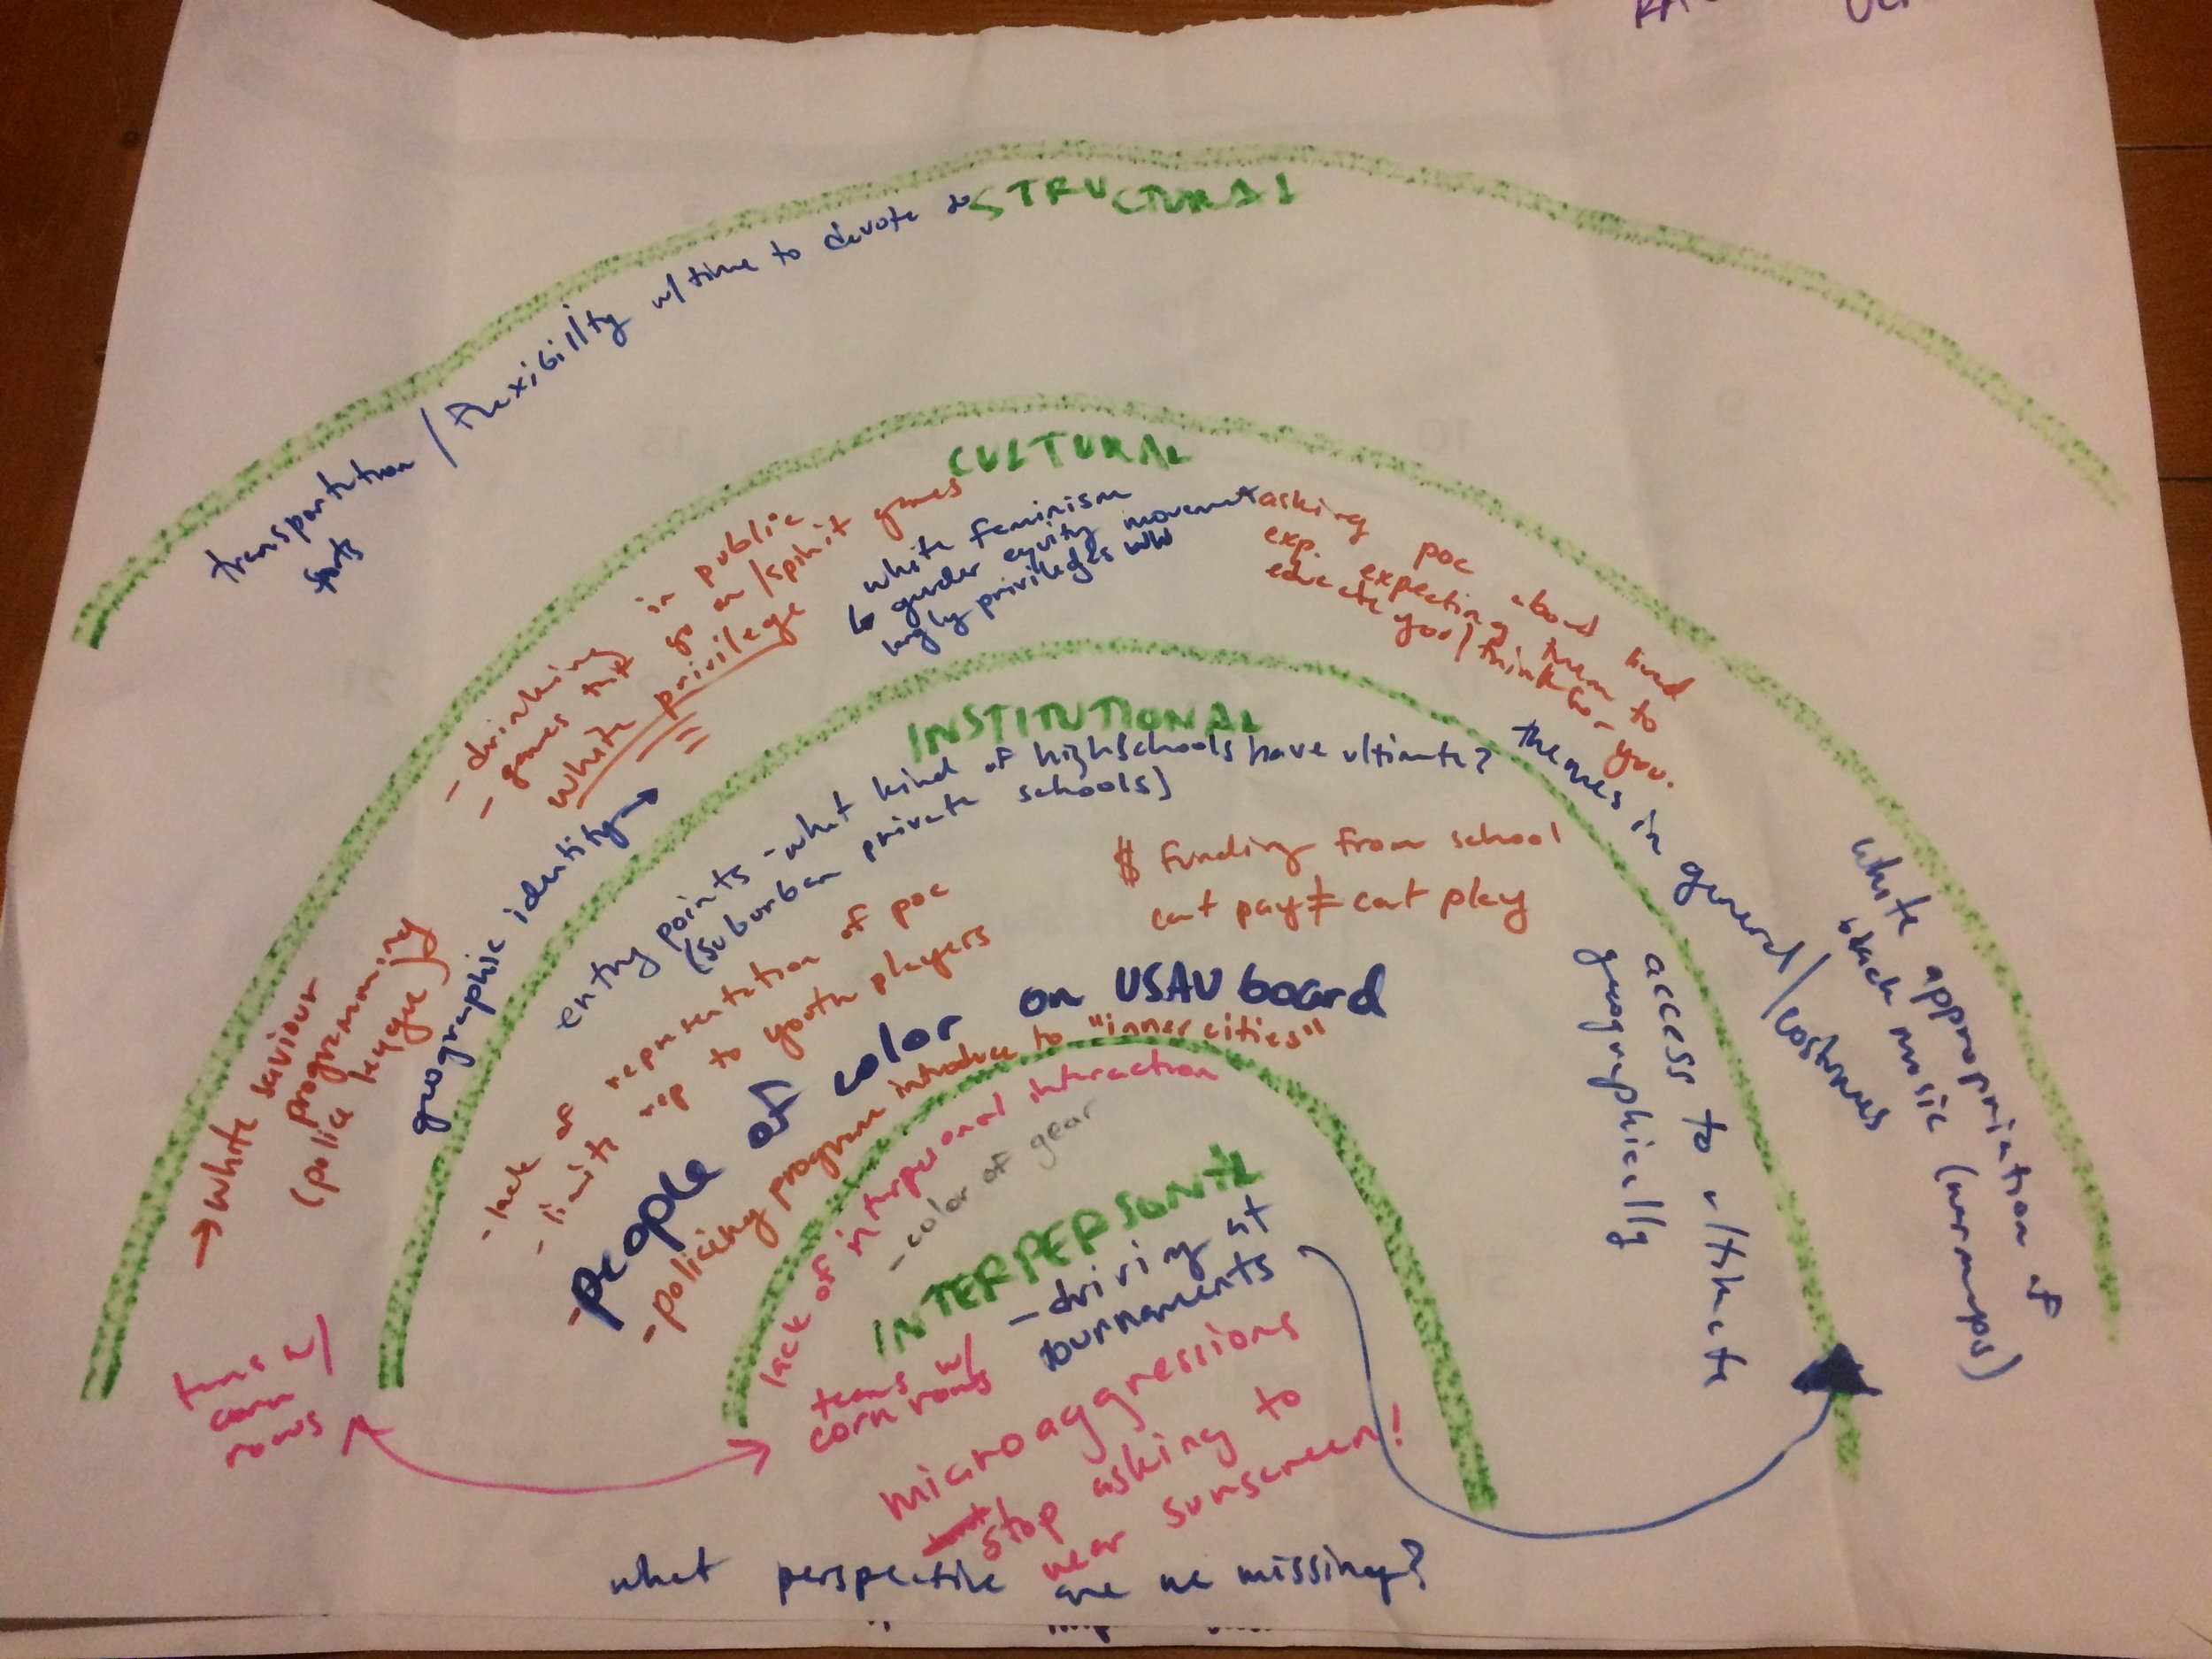 STRUCTURAL
transportation / Flexibility w/ time to devote to
CULTURAL
- drinking in public
- games that go on / spirit games
white privilege
white feminism
↳ gender equity movement
highly privileges WW
asking poc about kind
exp. expecting them to
educate you / think for you.
themes in general / costumes
white appropriation of
black music (warmups)
→ white saviour
programming
(police league)
geographic identity →
teams w/
corn
rows
INSTITUTIONAL
entry points - what kind of highschools have ultimate?
(suburban private schools)
$ funding from school
cant pay ≠ cant play
- lack of representation of poc
- limits rep to youth players
- people of color on USAU board
- policing program introduce to "inner cities"
access to ultimate
geographically
lack of interpersonal interaction
- color of gear
INTERPERSONAL
- driving at
tournaments
teams w/
corn rows
microaggressions
stop asking to
wear sunscreen!
what perspective are we missing?